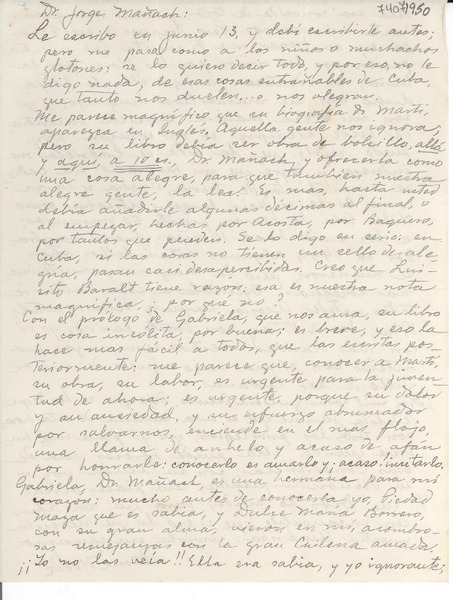 740
1950
Dr. Jorge Mañach:
Le escribo en junio 13, y debí escribirle antes;
pero me pasa como a los niños o muchachos
glotones: se lo quiero decir todo, y por eso, no le
digo nada, de esas cosas entrañables de Cuba,
que tanto nos duelen... o nos alegran.
Me parece magnífico que su biografía de Martí,
aparezca en Ingles. Aquella gente nos ignora,
pero su libro debía ser obra de bolsillo, allá
y aquí, a 10 cs., Dr. Mañach, y ofrecerla como
una cosa alegre, para que tambien nuestra
alegre gente, la lea. Es mas, hasta usted
debía añadirle algunas décimas al final, o
al empezar, hechas por Acosta, por Baquero,
por tantos que pueden. Se lo digo en serio: en
Cuba, si las cosas no tienen un sello de ale-
gría, pasan casi desapercibidas. Creo que Lui-
sito Baralt tiene razon: esa es nuestra nota
magnífica, ¿por qué no?
Con el prólogo de Gabriela, que nos ama, su libro
es cosa insólita, por buena; es breve, y eso la
hace mas fácil a todos, que las escritas pos-
teriormente: me parece que, conocer a Martí,
su obra, su labor, es urgente para la juven-
tud de ahora; es urgente, porque su dolor
y su ansiedad, y su esfuerzo abrumador
por salvarnos, enciende en el mas flojo,
una llama de anhelo y acaso de afán
por honrarlo: conocerlo es amarlo y ¡acaso! imitarlo.
Gabriela, Dr. Mañach, es una hermana para mi
corazon: mucho antes de conocerla yo, Piedad
Maza que es sabia, y Dulce María Borrero,
con su gran alma, vieron en mi, asombro-
sas semejanzas con la gran Chilena amada.
¡¡Yo no las veía!! Ella era sabia, y yo ignorante;